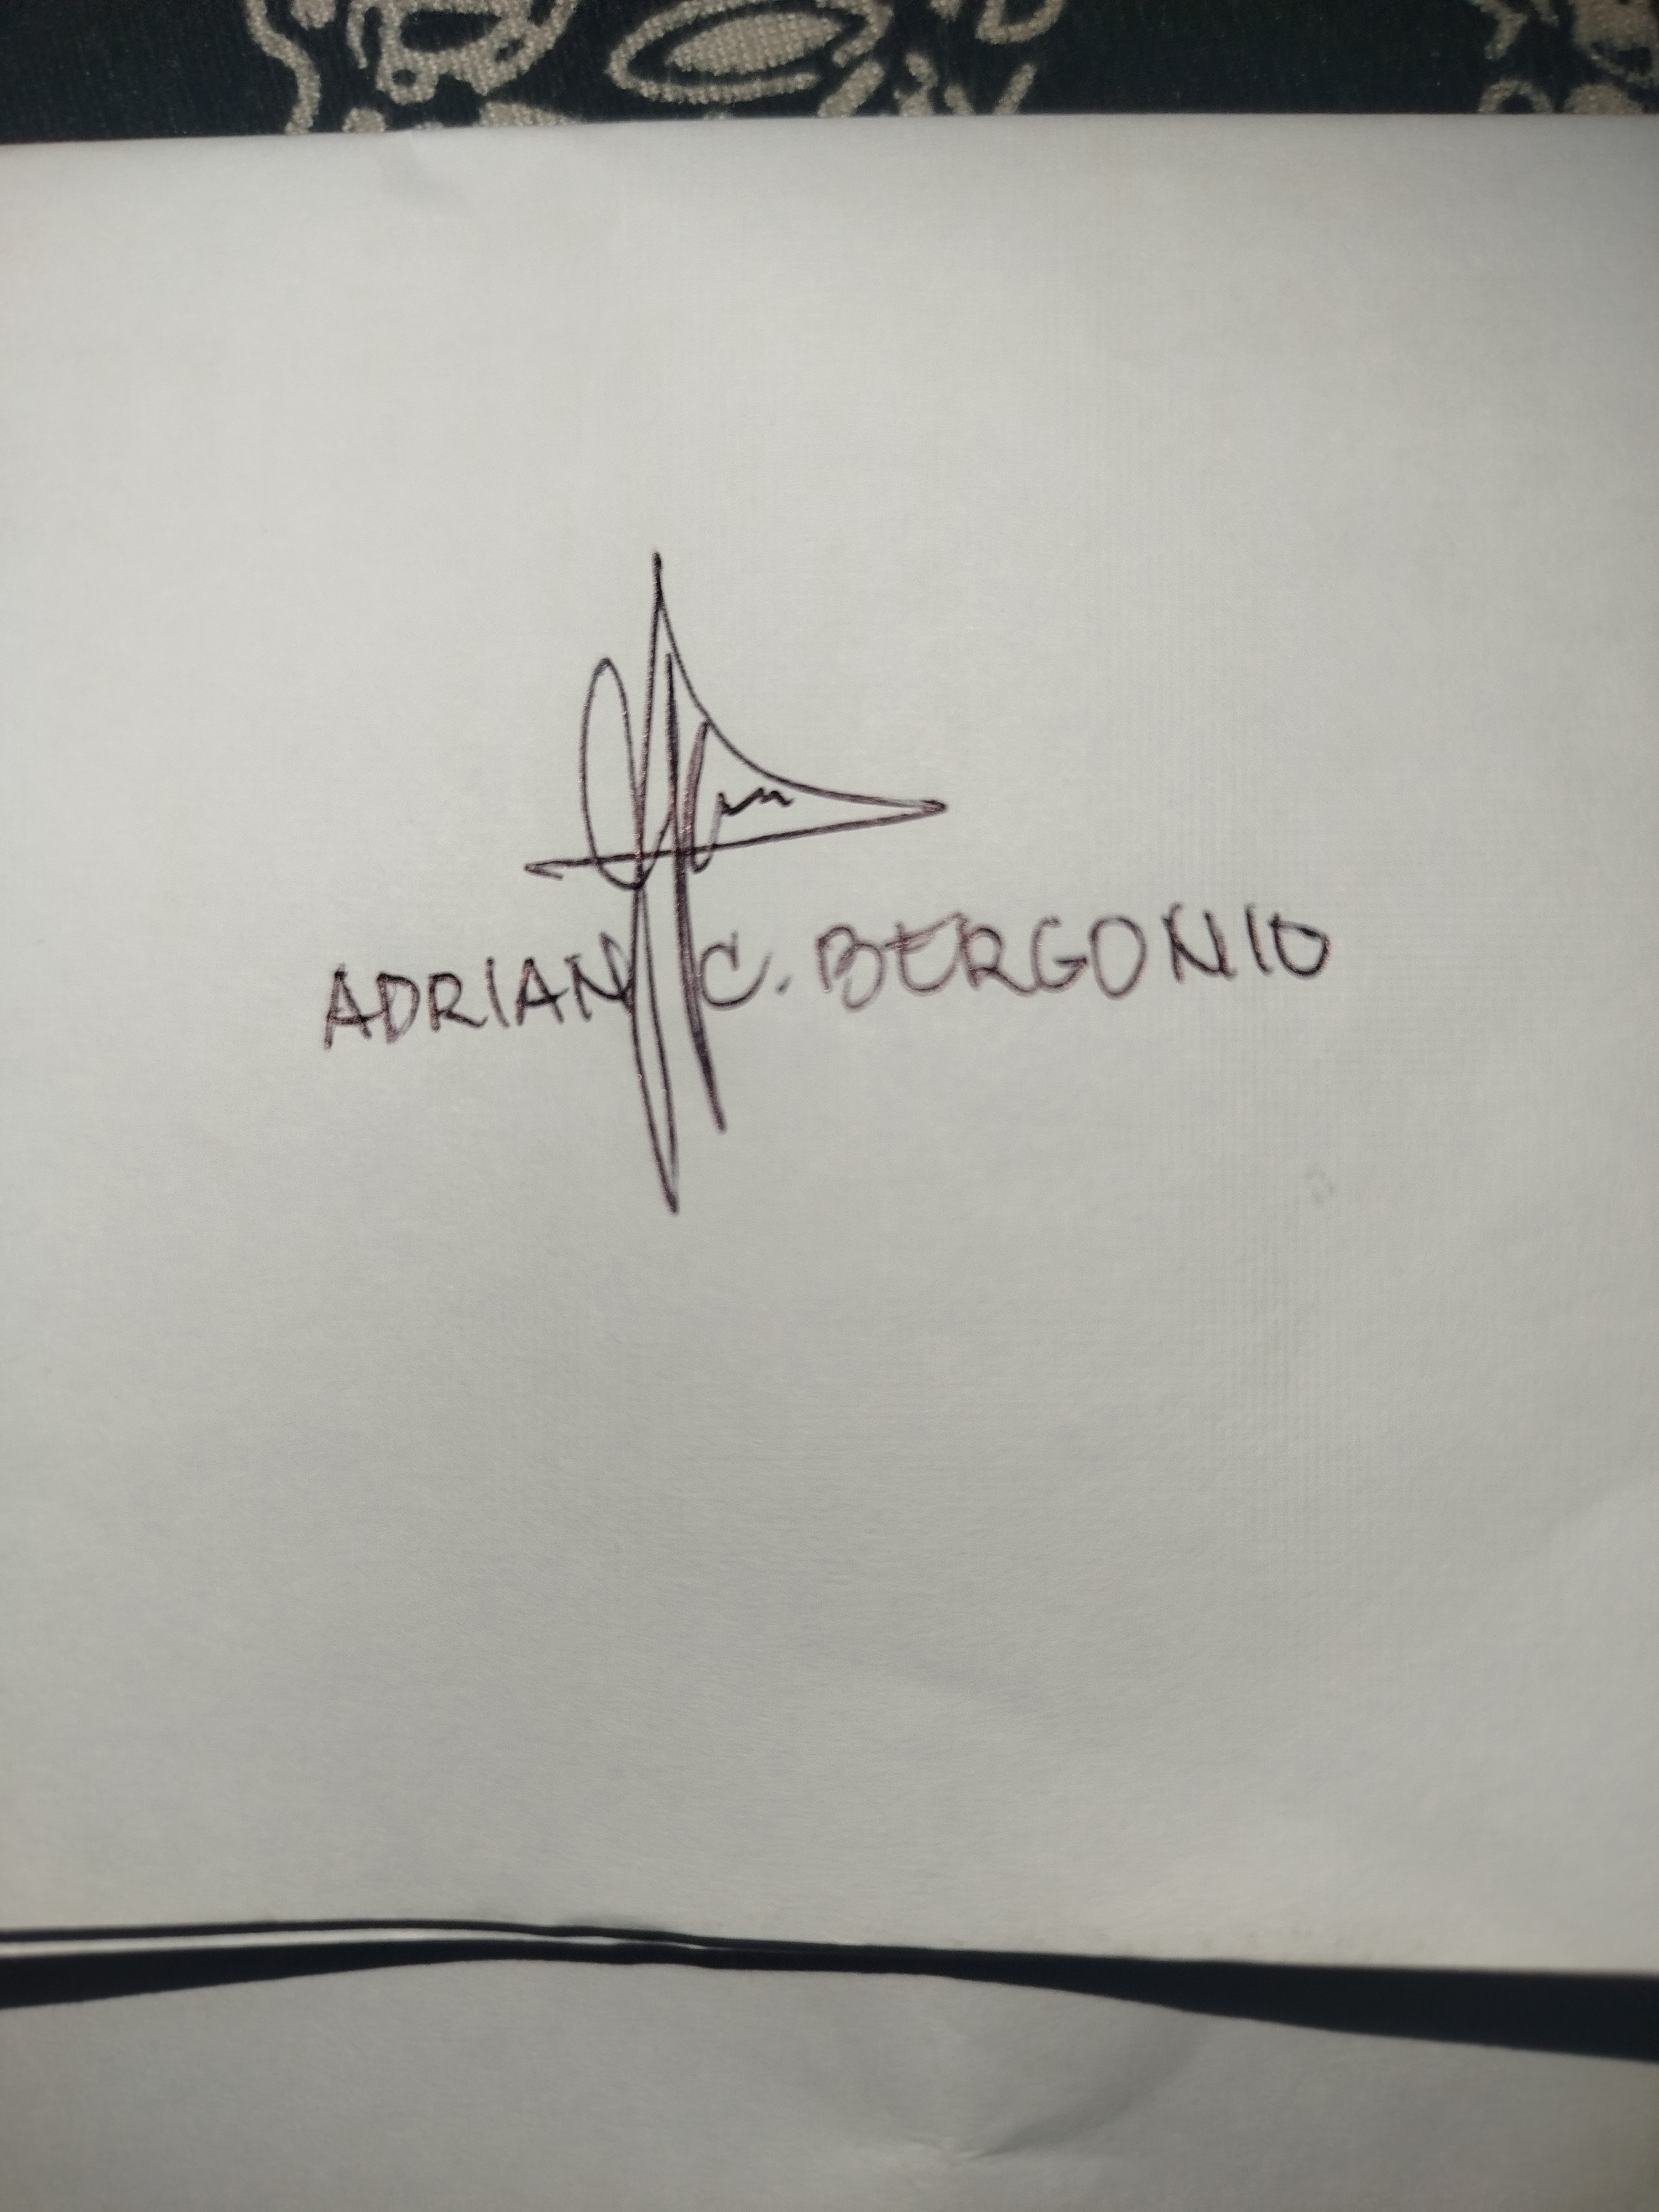 ADRIAN C. BERGONIO